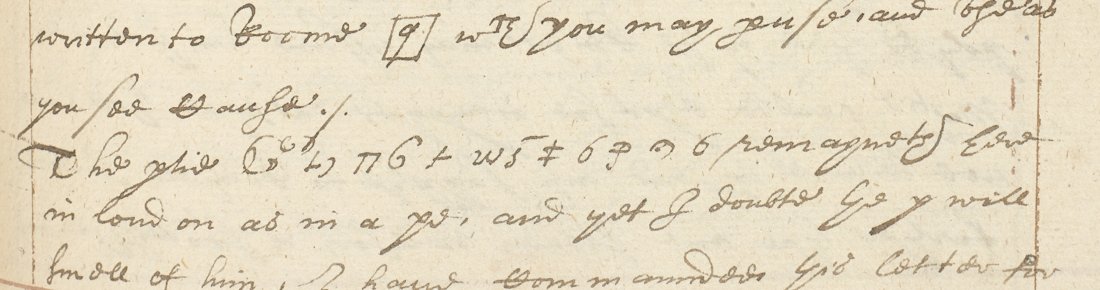 written to Roome [q] wch you may puse, and vse as
you see Cause ./.
The ptie remayneth here
in london as in a pe, and yet I doubte he p will
smell of him, I haue Commaunded his letter for